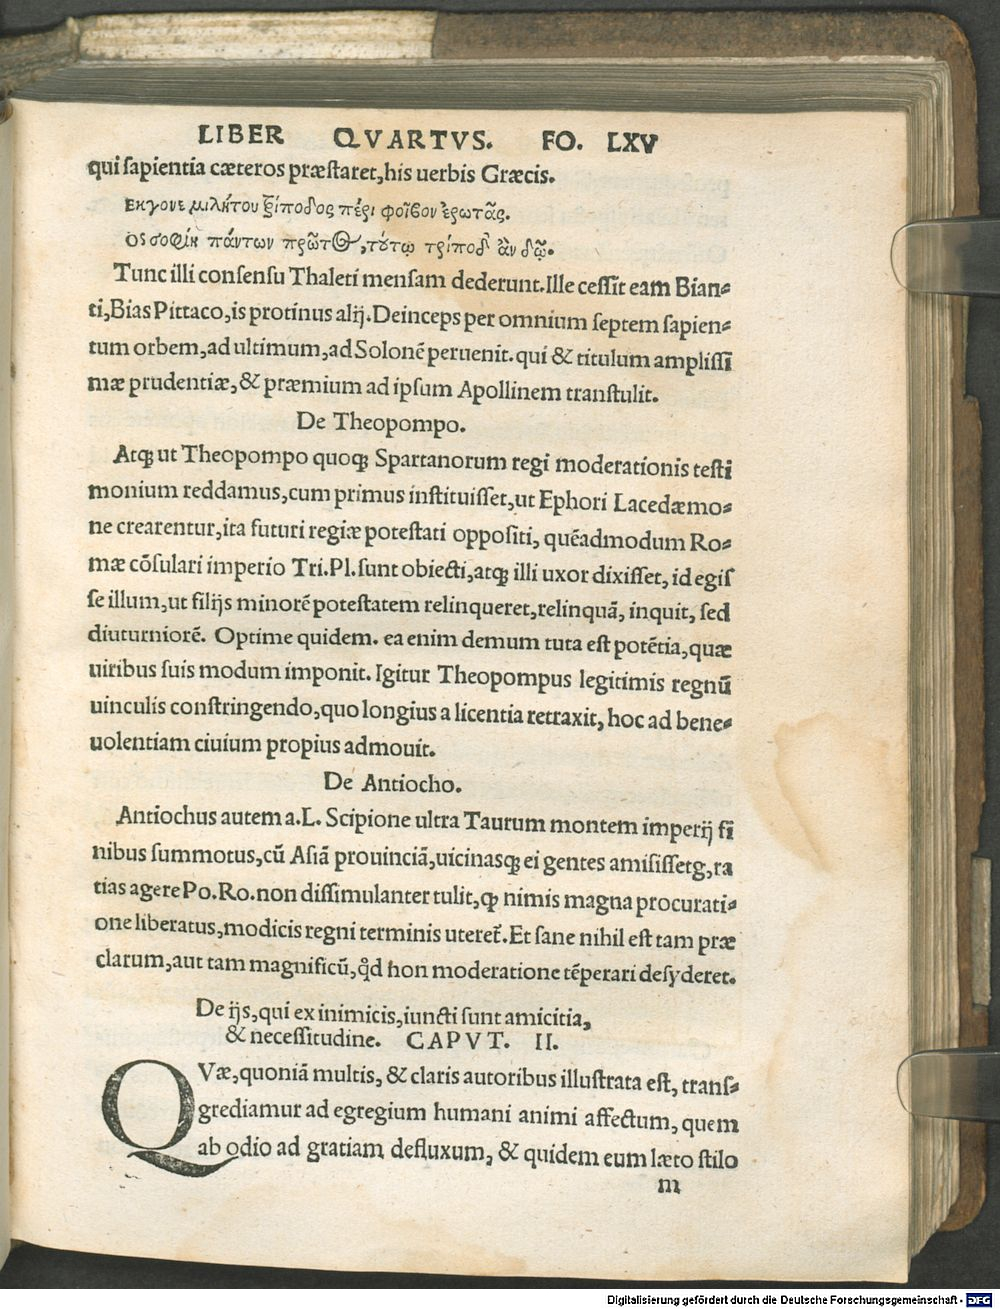 LIBER QVARTVS. FO. LXV
qui sapientia cæteros præstaret,his uerbis Græcis.
Εκγονε μιλήτου ξίποδος πέρι φοῖβον ἐρωτᾷς.
Ος σοφίῃ πάντων πρῶτος,τούτῳ τρίποδ' ἂν δῶ.
Tunc illi consensu Thaleti mensam dederunt.Ille cessit eam Bian⸗
ti,Bias Pittaco,is protinus alij.Deinceps per omnium septem sapien⸗
tum orbem,ad ultimum,ad Solonē peruenit.qui & titulum amplissi
mæ prudentiæ,& præmium ad ipsum Apollinem transtulit.
De Theopompo.
Atq; ut Theopompo quoq; Spartanorum regi moderationis testi
monium reddamus,cum primus instituisset,ut Ephori Lacedæmo⸗
ne crearentur,ita futuri regiæ potestati oppositi, quēadmodum Ro⸗
mæ cōsulari imperio Tri.Pl.sunt obiecti,atq; illi uxor dixisset, id egis
se illum,ut filijs minorē potestatem relinqueret,relinquā, inquit, sed
diuturniorē. Optime quidem. ea enim demum tuta est potētia,quæ
uiribus suis modum imponit. Igitur Theopompus legitimis regnū
uinculis constringendo,quo longius a licentia retraxit, hoc ad bene⸗
uolentiam ciuium propius admouit.
De Antiocho.
Antiochus autem a.L. Scipione ultra Taurum montem imperij fi
nibus summotus,cū Asiā prouinciā,uicinasq; ei gentes amisissetg,ra
tias agere Po.Ro.non dissimulanter tulit,ꝙ nimis magna procurati⸗
one liberatus,modicis regni terminis uteret᷑.Et sane nihil est tam præ
clarum,aut tam magnificū,qd̓ non moderatione tēperari desyderet.
De ijs,qui ex inimicis,iuncti sunt amicitia,
& necessitudine. CAPVT. II.
QVæ,quoniā multis, & claris autoribus illustrata est, trans⸗
grediamur ad egregium humani animi affectum, quem
ab odio ad gratiam defluxum, & quidem eum læto stilo
m
Digitalisierung gefördert durch die Deutsche Forschungsgemeinschaft - DFG